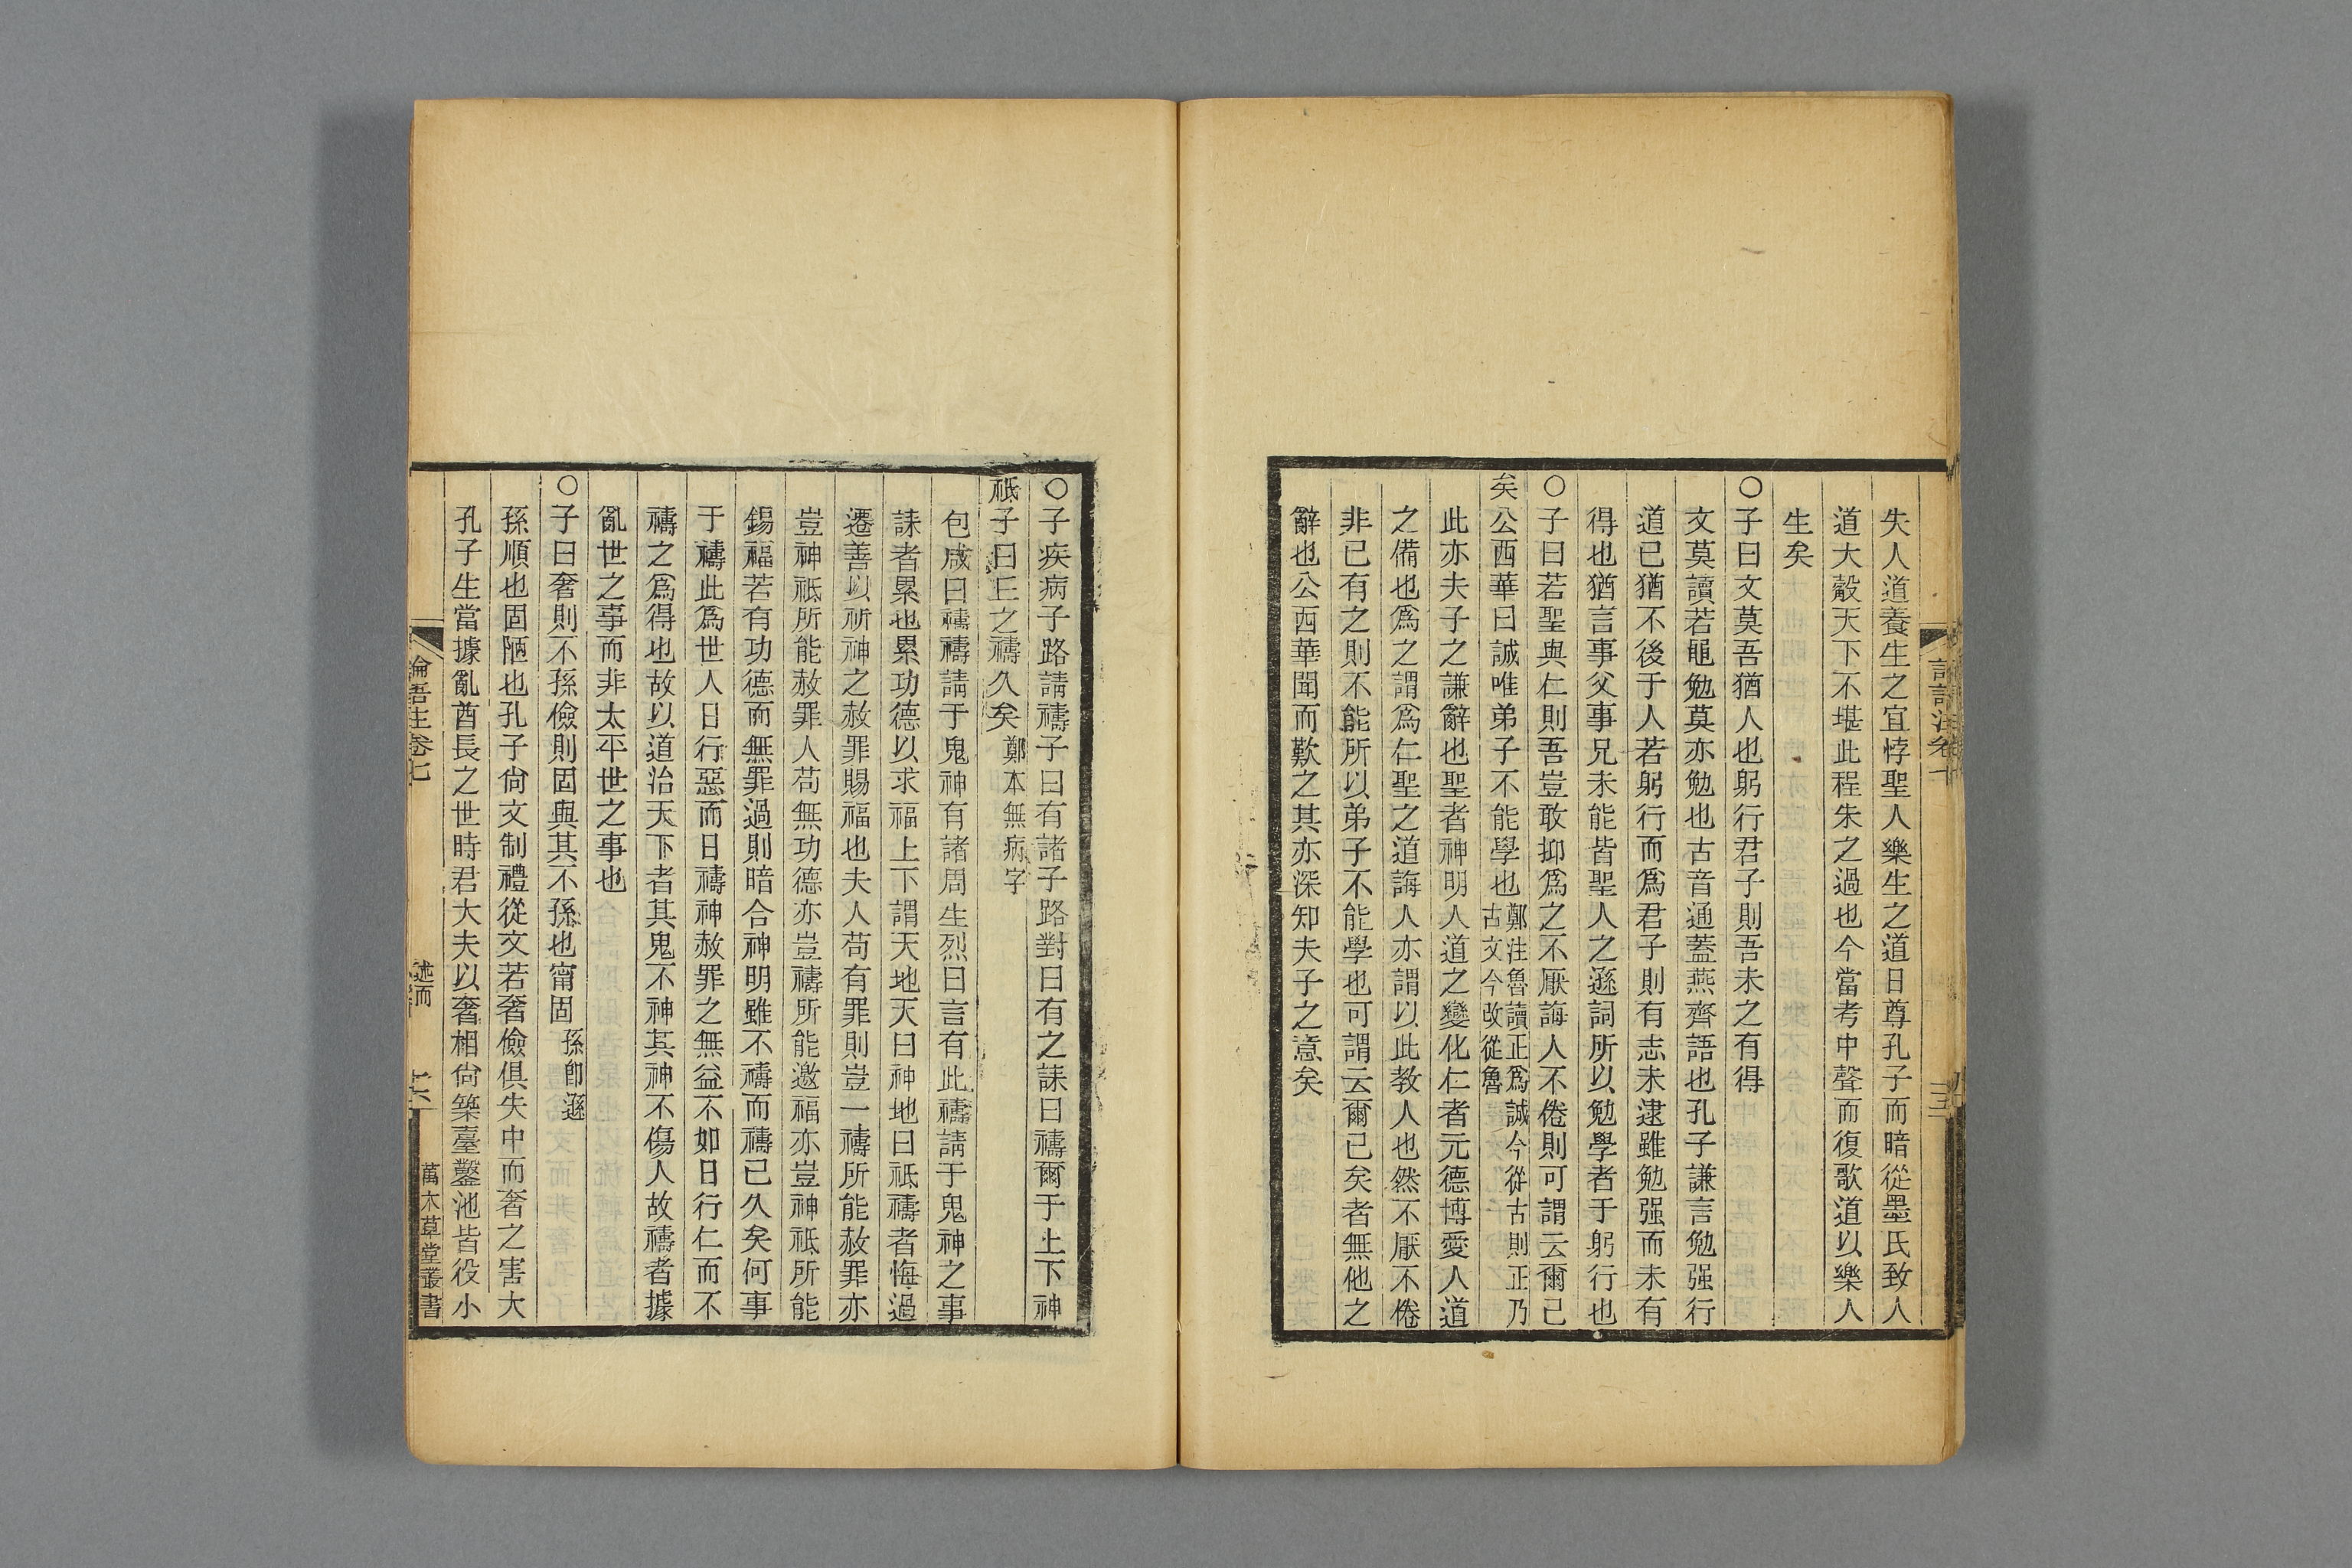 失人道養生之宜悖聖人樂生之道日尊孔子而暗從墨氏致人
道大觳天下不堪此程朱之過也今當考中聲而復歌道以樂人
生矣
○子曰文莫吾猶人也躬行君子則吾未之有得
文莫讀若黽勉莫亦勉也古音通蓋燕齊語也孔子謙言勉强行
道已猶不後于人若躬行而爲君子則有志未逮雖勉强而未有
得也猶言事父事兄未能皆聖人之遜詞所以勉學者于躬行也
○子曰若聖與仁則吾豈敢抑爲之不厭誨人不倦則可謂云爾已
矣公西華曰誠唯弟子不能學也鄭注魯讀正爲誠今從古則正乃古文今改從魯
此亦夫子之謙辭也聖者神明人道之變化仁者元德博愛人道
之備也爲之謂爲仁聖之道誨人亦謂以此教人也然不厭不倦
非已有之則不能所以弟子不能學也可謂云爾已矣者無他之
辭也公西華聞而歎之其亦深知夫子之意矣
○子疾病子路請禱子曰有諸子路對曰有之誄曰禱爾于上下神
祇子曰丘之禱久矣鄭本無病字
包咸曰禱禱請于鬼神有諸周生烈曰言有此禱請于鬼神之事
誄者累也累功德以求福上下謂天地天曰神地曰祇禱者悔過
遷善以祈神之赦罪賜福也夫人苟有罪則豈一禱所能赦罪亦
豈神祇所能赦罪人苟無功德亦豈禱所能邀福亦豈神祇所能
錫福若有功德而無罪過則暗合神明雖不禱而禱已久矣何事
于禱此爲世人日行惡而日禱神赦罪之無益不如日行仁而不
禱之爲得也故以道治天下者其鬼不神其神不傷人故禱者據
亂世之事而非太平世之事也
○子曰奢則不孫儉則固與其不孫也甯固孫卽遜
孫順也固陋也孔子尙文制禮從文若奢儉俱失中而奢之害大
孔子生當據亂酋長之世時君大夫以奢相尙築臺鑿池皆役小
論語注卷七
述而
萬木草堂叢書